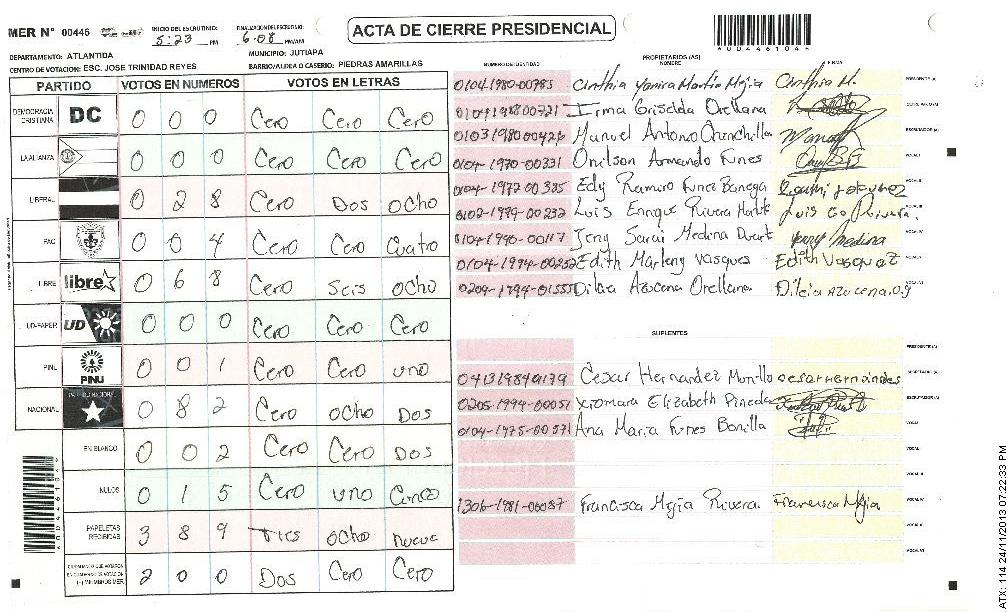 MER N° 00446 INICIO DEL ESCRUTINIO: 5:23 PM FINALIZACION DEL ESCRUTINIO: 6:08 PM/AM
ACTA DE CIERRE PRESIDENCIAL
DEPARTAMENTO: ATLANTIDA MUNICIPIO: JUTIAPA
CENTRO DE VOTACION: ESC. JOSE TRINIDAD REYES BARRIO/ALDEA O CASERIO: PIEDRAS AMARILLAS
PARTIDO VOTOS EN NUMEROS VOTOS EN LETRAS
DEMOCRACIA CRISTIANA DC 0 0 0 Cero Cero Cero
LA ALIANZA 0 0 0 Cero Cero Cero
LIBERAL 0 2 8 Cero Dos ocho
PAC 0 0 4 Cero Cero Cuatro
LIBRE libre 0 6 8 Cero Seis ocho
UD-FAPER UD 0 0 0 Cero Cero Cero
PINU PINU 0 0 1 Cero Cero uno
NACIONAL 0 8 2 Cero ocho Dos
EN BLANCO 0 0 2 Cero Cero Dos
NULOS 0 1 5 Cero uno Cinco
PAPELETAS RECIBIDAS 3 8 9 Tres ocho nueve
2 0 0 Dos Cero Cero
NUMERO DE IDENTIDAD PROPIETARIOS (AS) NOMBRE FIRMA
0104-1980-00785 Cinthia Yanira Martin Mejia Cinthia M. PRESIDENTE (A)
Irma Griselda Orellana
0103 1980 00426 Manuel Antonio Chinchilla ESCRUTADOR (A)
0104-1970-00331 Onilson Armando Funes VOCAL I
0104-1972 00385 Edy Ramiro Funez Banega VOCAL II
0102-1979-00232 Luis Enrique Rivera VOCAL III
0104-1990-00117 Jeny Sarai Medina Duarte Jeny Medina
0104-1994-00252 Edith Marleny Vasques Edith Vasquez
0209-1994-01555 Dilcia Azucena Orellana Dilcia Azucena.O.
SUPLENTES
PRESIDENTE (A)
Cesar Hernandez Murillo cesar hernandes SECRETARIO (A)
0205-1994-00051 Xiomara Elizabeth Pineda ESCRUTADOR (A)
0104-1975-00571 Ana Maria Funes Bonilla
1306-1981-00087 Francisca Mejia Rivera Francisca Mejia
A004461044
ATX: 114 24/11/2013 07:22:33 PM